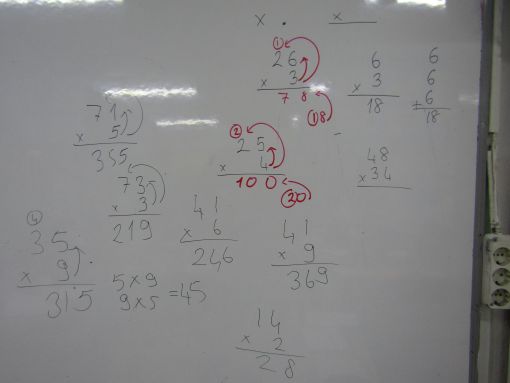 x . x
①
26
x 3
78
①8
6
x 3
18
6
6
+6
18
71
x 5
355
②
25
x 4
100
②0
48
x34
73
x 3
219
41
x 6
246
41
x 9
369
④
35
x 9
315
5x9
9x5 =45
14
x 2
28